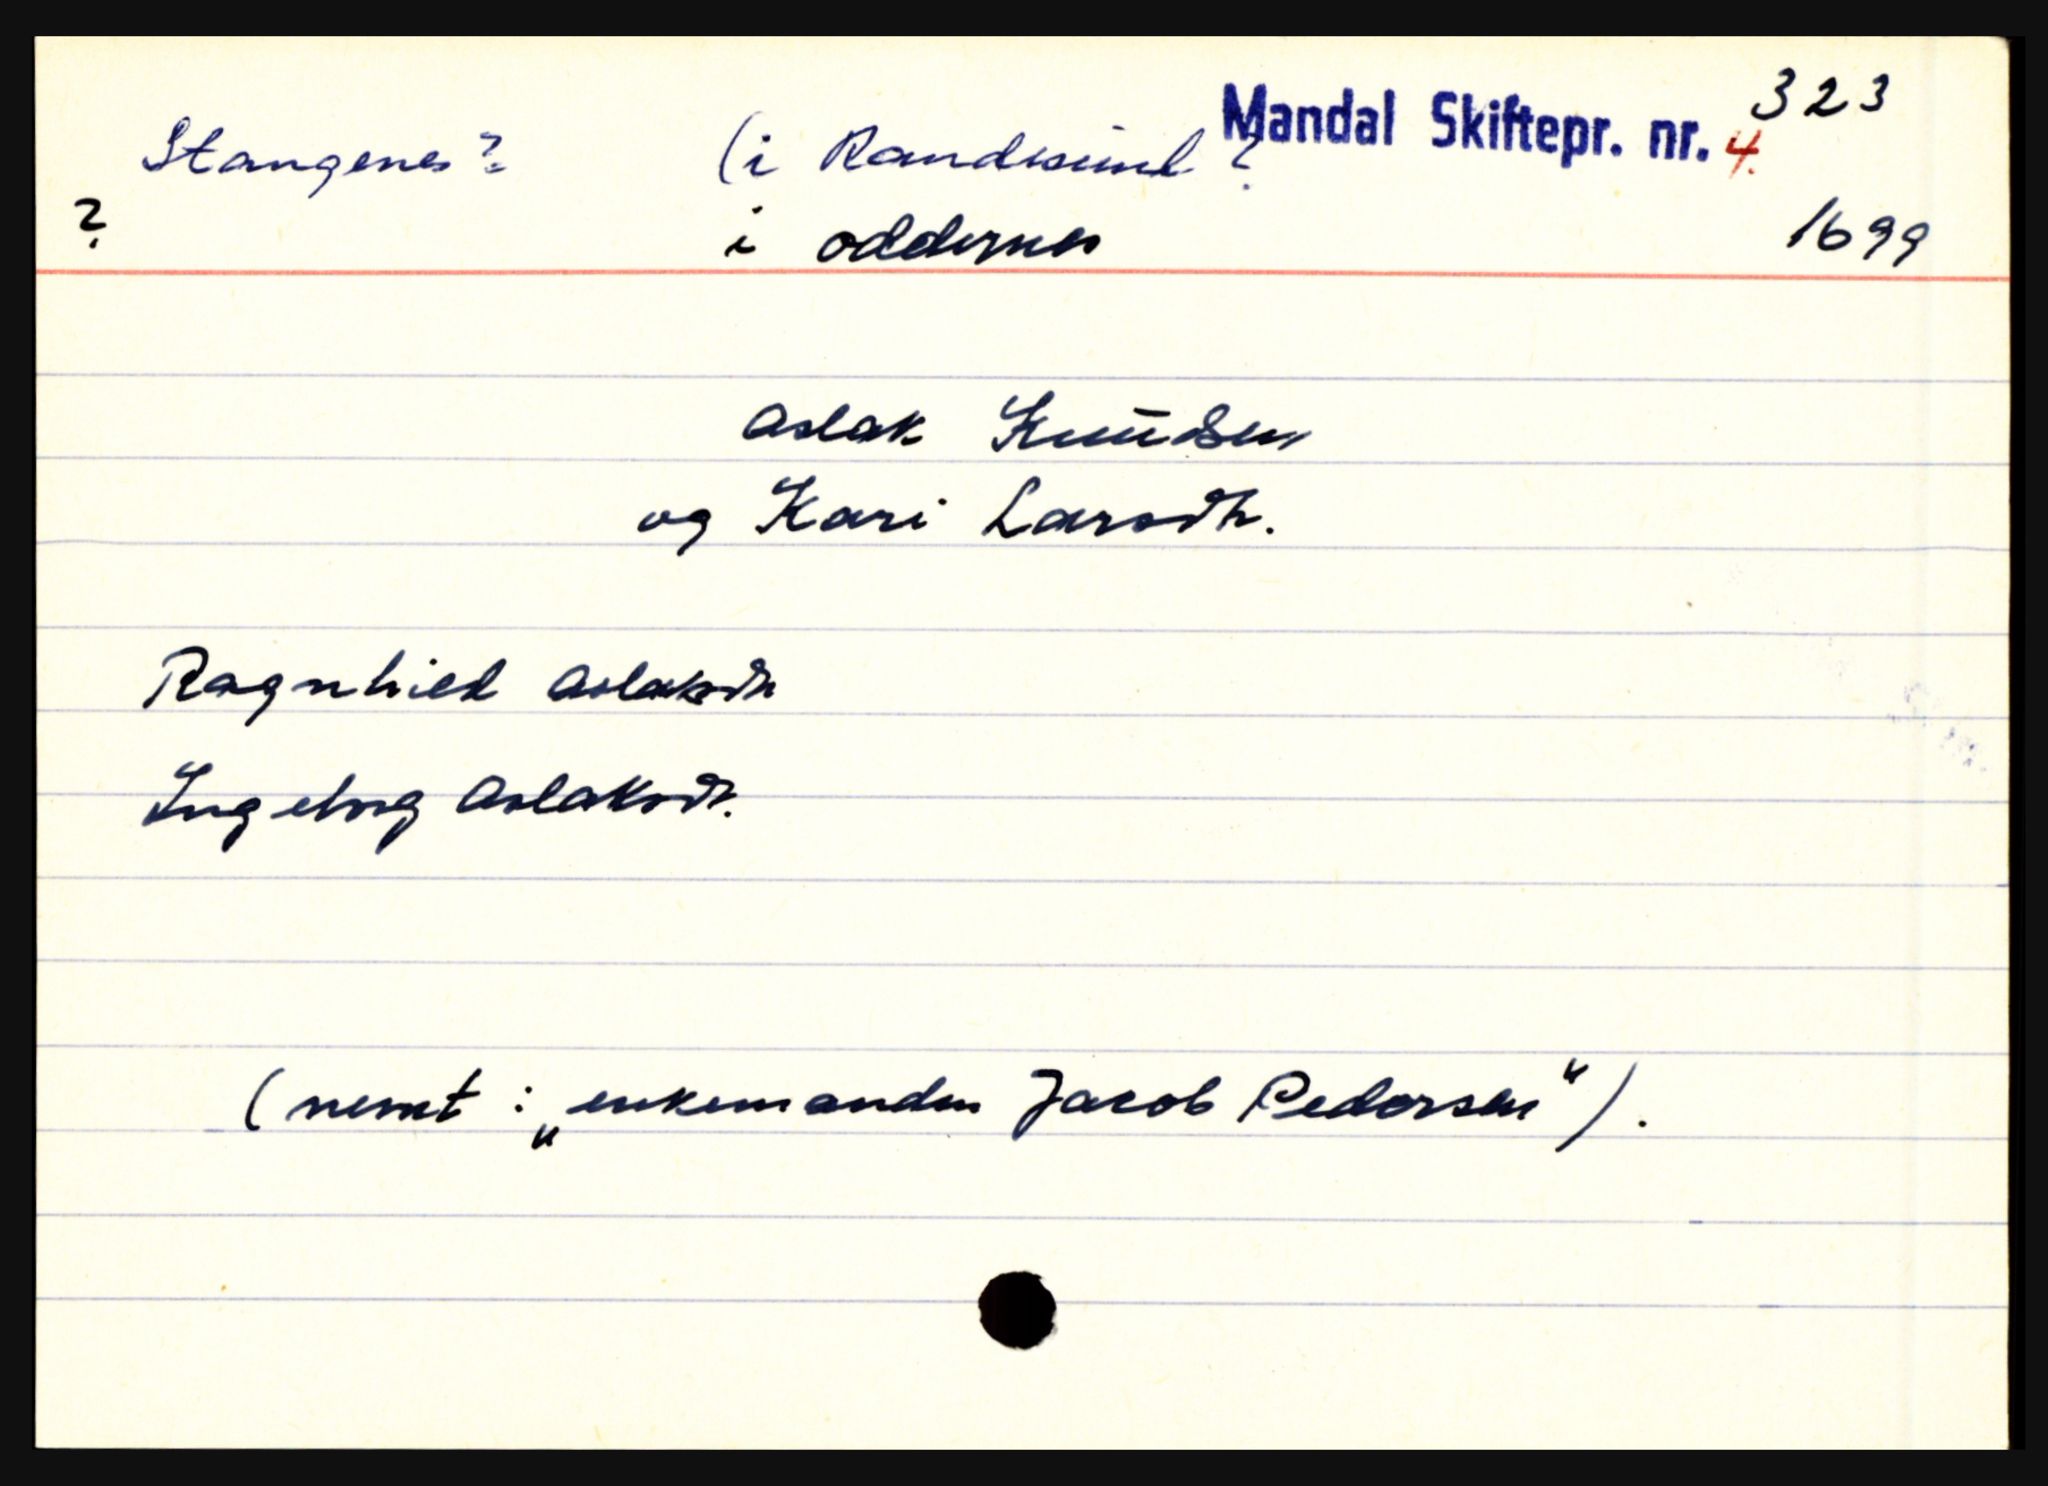 323
Mandal Skiftepr. nr. 4.
Stangenes? (i Randesund ?
? i oddernes 1699
Aslak Knudsen
og Kari Larsdtr.
Ragnhild Aslaksdtr
Ingeborg Aslaksdtr.
(nemt : „enkemanden Jacob Pedersen").